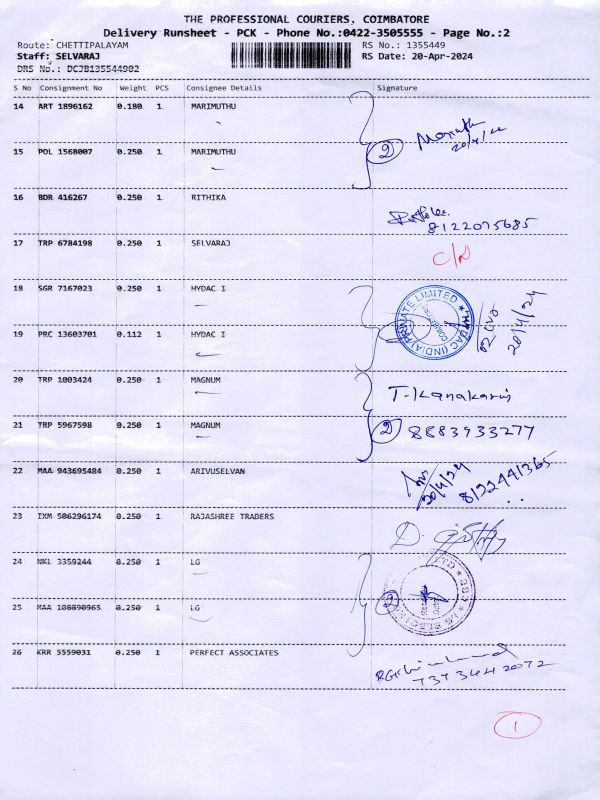 THE PROFESSIONAL COURIERS, COIMBATORE
Delivery Runsheet - PCK - Phone No.:0422-3505555 - Page No.:2
Route: CHETTIPALAYAM RS No.: 1355449
Staff: SELVARAJ RS Date: 20-Apr-2024
DRS No.: DCJB135544902
S No Consignment No Weight PCS Consignee Details Signature
14 ART 1896162 0.180 1 MARIMUTHU
15 POL 1568007 0.250 1 MARIMUTHU 2
16 BDR 416267 0.250 1 RITHIKA
8122075685
17 TRP 6784198 0.250 1 SELVARAJ C/N
18 SGR 7167023 0.250 1 HYDAC I
HYDAC (INDIA) PRIVATE LIMITED
20/4/24
19 PRC 13603701 0.112 1 HYDAC I
20 TRP 1003424 0.250 1 MAGNUM
21 TRP 5967598 0.250 1 MAGNUM 2 8883933277
22 MAA 943695484 0.250 1 ARIVUSELVAN
20/4/24 8122441365
23 IXM 506296174 0.250 1 RAJASHREE TRADERS
24 NKL 3359244 0.250 1 LG
25 MAA 108890965 0.250 1 LG 2
26 KRR 5559031 0.250 1 PERFECT ASSOCIATES
7373442072
1